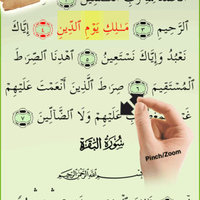 ٱلرَّحِيمِ ٣ مَٰلِكِ يَوْمِ ٱلدِّينِ ٤ إِيَّاكَ
نَعْبُدُ وَإِيَّاكَ نَسْتَعِينُ ٥ ٱهْدِنَا ٱلصِّرَٰطَ
ٱلْمُسْتَقِيمَ ٦ صِرَٰطَ ٱلَّذِينَ أَنْعَمْتَ عَلَيْهِمْ
عَلَيْهِمْ وَلَا ٱلضَّآلِّينَ ٧
سُورَةُ البَقَرَةِ
Pinch/Zoom
بِسْمِ ٱللَّهِ ٱلرَّحْمَٰنِ ٱلرَّحِيمِ